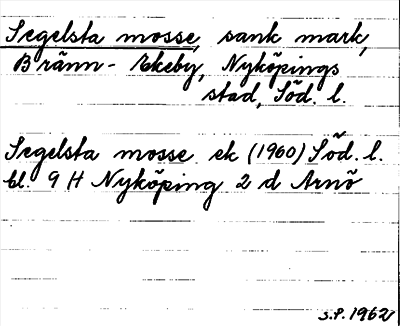 Segelsta mosse, sank mark,
Bränn-Ekeby, Nyköpings
stad, Söd. l.
Segelsta mosse ek (1960) Söd. l.
bl. 9 H Nyköping 2 d Arnö
S.P. 1962